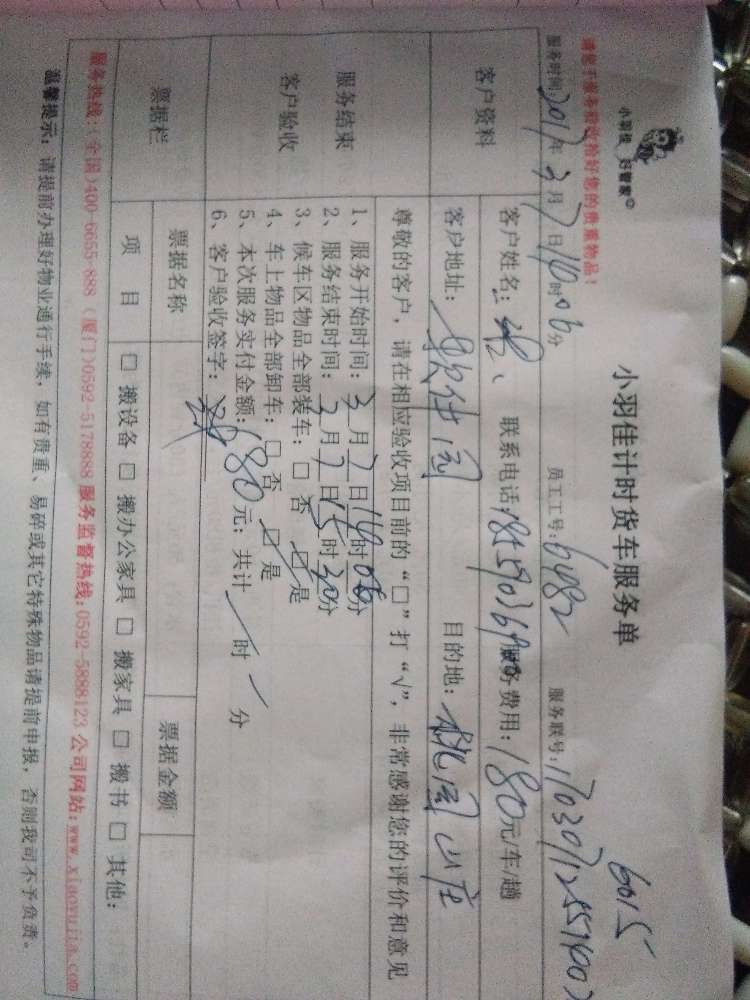 小羽佳 好管家
小羽佳计时货车服务单
6015
请您于服务验收拾好您的贵重物品！
服务时间：2017年3月7日14时06分 员工工号：6482 服务联号：
客户资料
客户姓名： 联系电话： 服务费用：180元/车/趟
客户地址：软件园 目的地：桃园山庄
服务结束
客户验收
尊敬的客户，请在相应验收项目前的“□”打“√”，非常感谢您的评价和意见
1、服务开始时间：3月7日14时06分
2、服务结束时间：3月7日15时30分
3、候车区物品全部装车：□ 否 ☑ 是
4、车上物品全部卸车：□ 否 ☑ 是
5、本次服务实付金额：180元；共计 / 时 / 分
6、客户验收签字：
票据栏
票据名称 票据金额
项 目 □ 搬设备 □ 搬办公家具 □ 搬家具 □ 搬书 □ 其他：
服务热线：（全国）400-6655-888（厦门）0592-5178888 服务监督热线：0592-5888123 公司网站：www.xiaoyujia.com
温馨提示：请提前办理好物业通行手续，如有贵重、易碎或其它特殊物品请提前申报，否则我司不予负责。